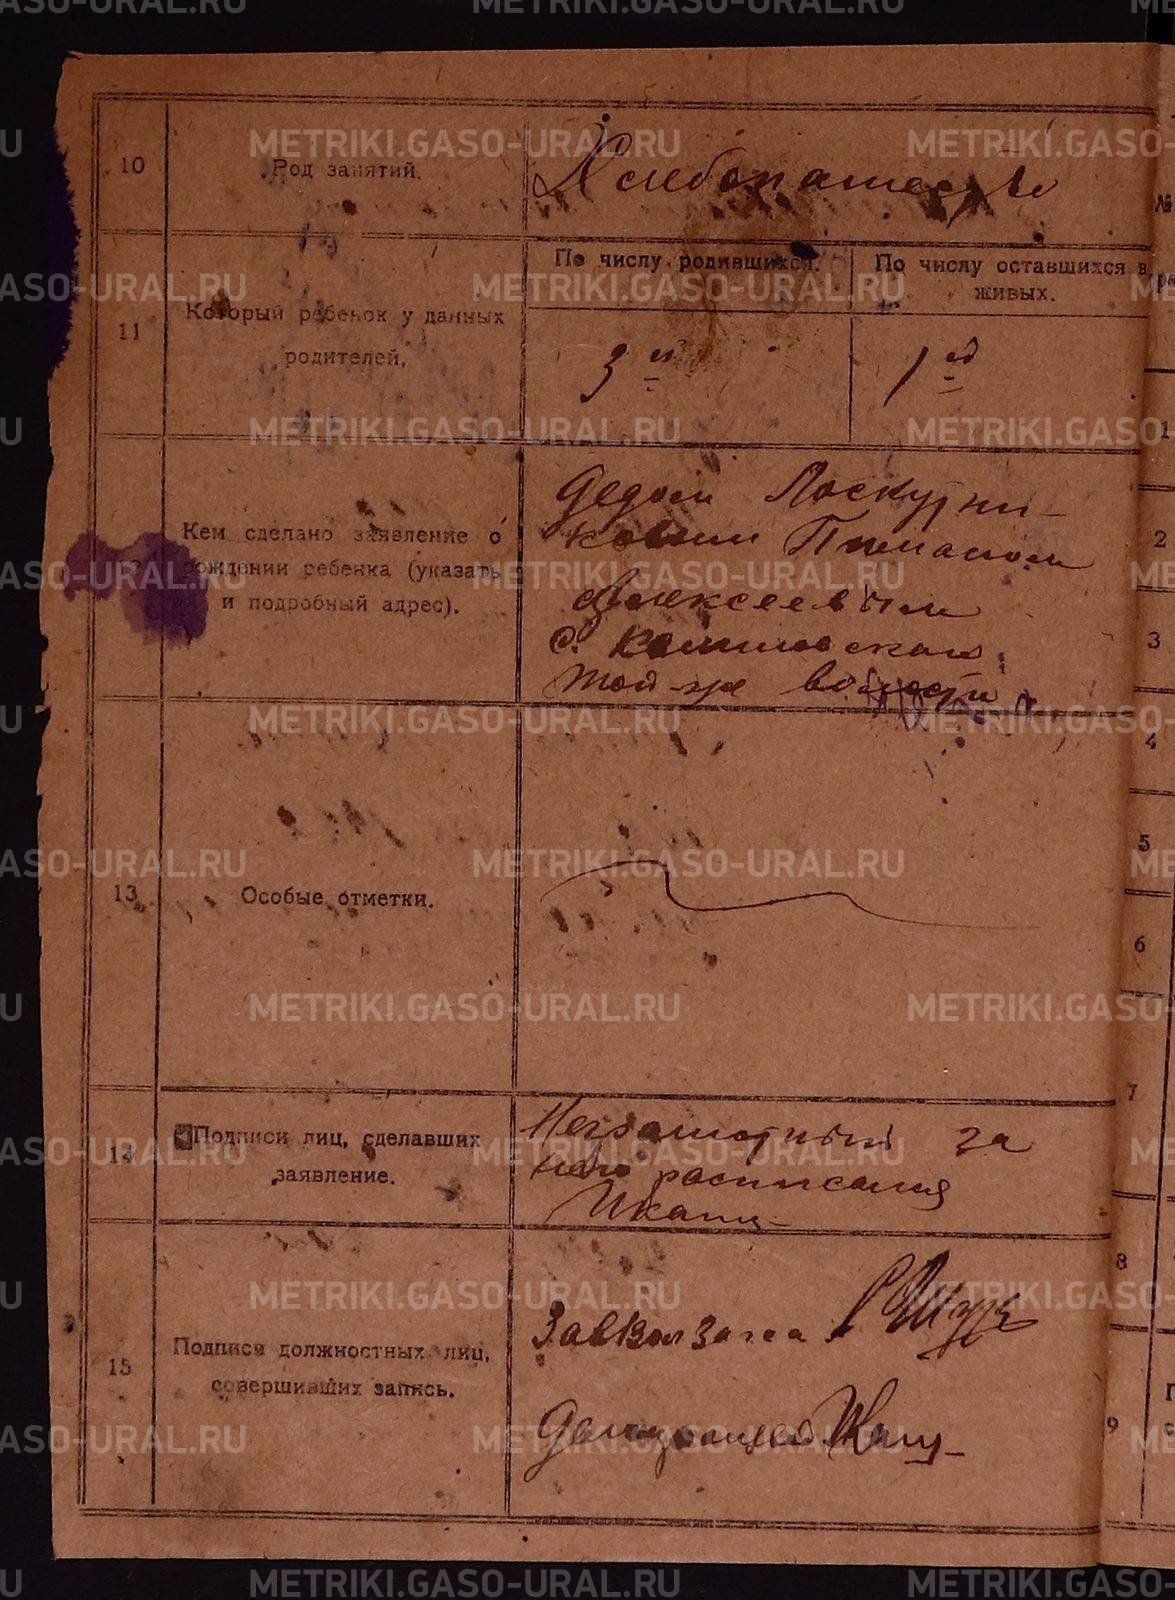 10
Род занятий.
Хлебопашество
11
Который ребенок у данных
родителей,
По числу родившихся.
По числу оставшихся в
живых.
3 й
1 ый
Кем сделано заявление о
рождении ребенка (указать
и подробный адрес).
Дедом Лоскутни-
ковым Пименом
Алексеевым
с.
той-же волости
13
Особые отметки.
14
Подписи лиц, сделавших
заявление.
Неграмотный за
него расписался
15
Подписи должностных лиц,
совершивших запись.
Завволзагса
№
1
2
3
4
5
6
7
8
9
METRIKI.GASO-URAL.RU